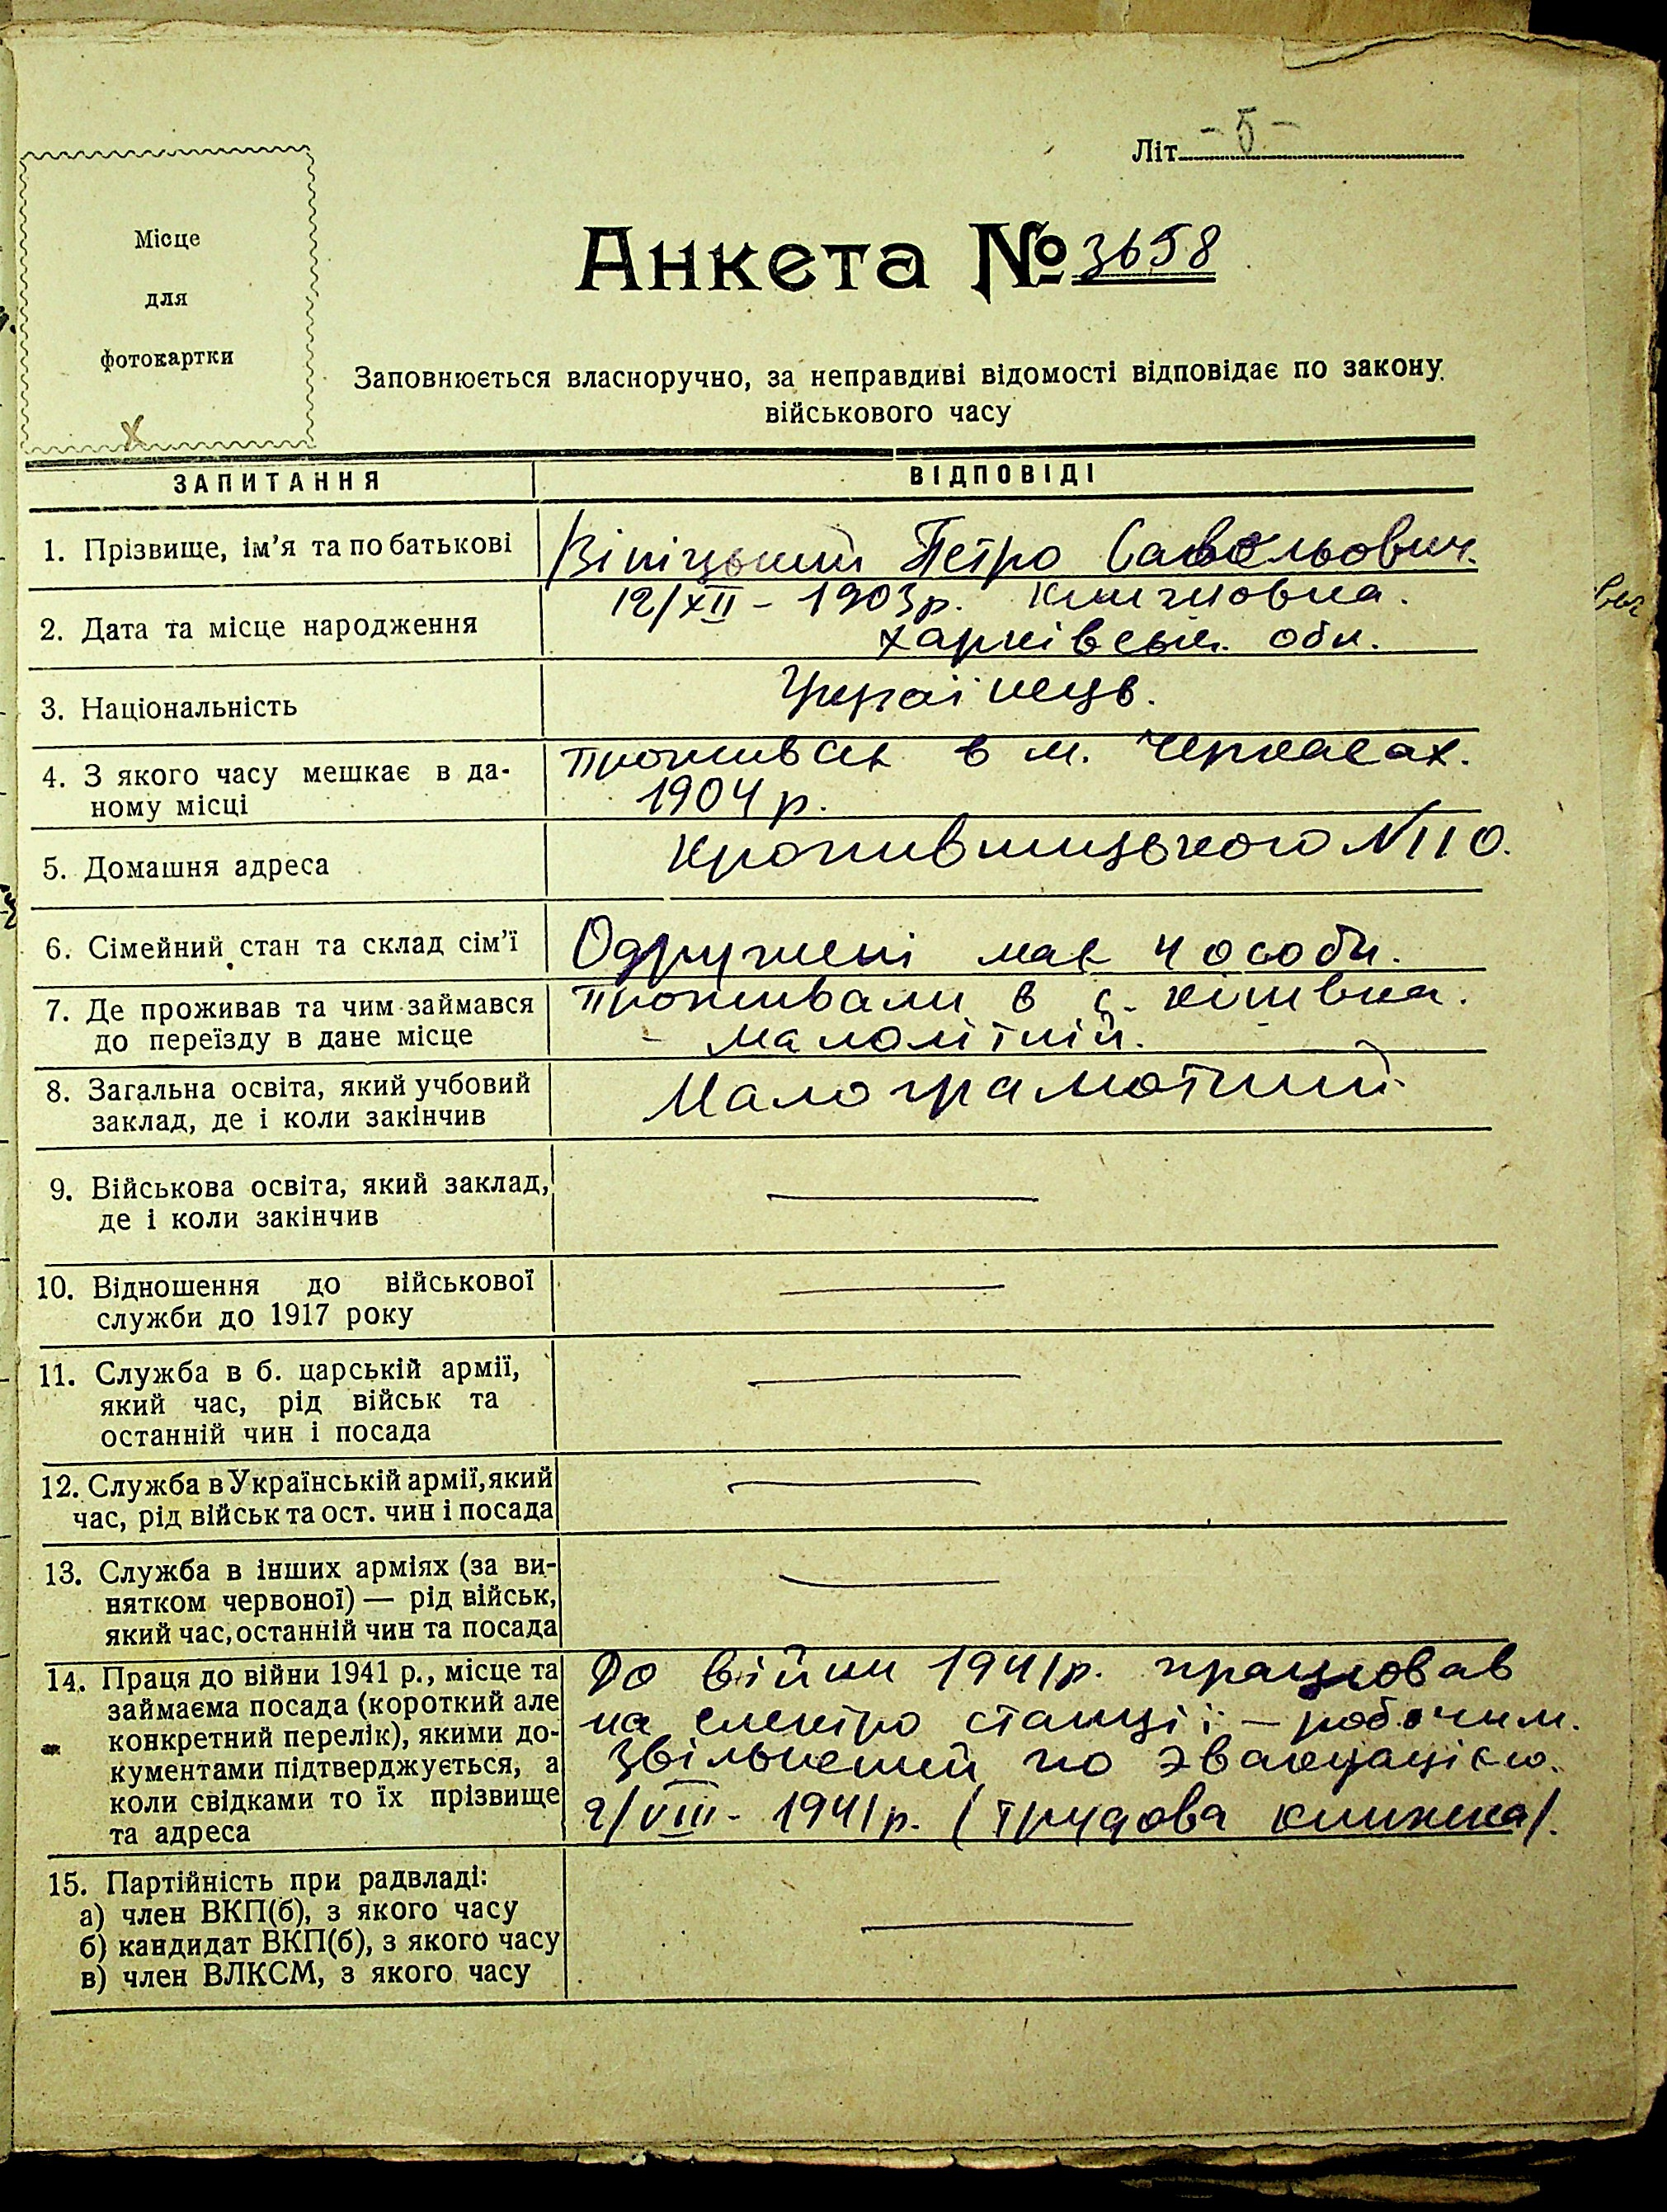 Літ. - 5 -
Місце
для
фотокартки
х
Анкета № 3658
Заповнюється власноручно, за неправдиві відомості відповідає по закону
військового часу
ЗАПИТАННЯ ВІДПОВІДІ
1. Прізвище, ім'я та по батькові Вініцький Петро Савельович.
2. Дата та місце народження 12/XII - 1903р.
Харківськ. обл.
3. Національність Українець.
4. З якого часу мешкає в да- Проживає в м. Черкасах.
ному місці 1904 р.
5. Домашня адреса Кропивницького №110.
6. Сімейний стан та склад сім'ї Одружені має 4 особи.
7. Де проживав та чим займався Проживали в с.
до переїзду в дане місце - малолітній.
8. Загальна освіта, який учбовий Малограмотний
заклад, де і коли закінчив
9. Військова освіта, який заклад, —
де і коли закінчив
10. Відношення до військової —
служби до 1917 року
11. Служба в б. царській армії, —
який час, рід військ та
останній чин і посада
12. Служба в Українській армії, який —
час, рід військ та ост. чин і посада
13. Служба в інших арміях (за ви- —
нятком червоної) — рід військ,
який час, останній чин та посада
14. Праця до війни 1941 р., місце та До війни 1941р. працював
займаєма посада (короткий але на електро станції — робочим.
конкретний перелік), якими до- Звільнений по эвакуацією.
кументами підтверджується, а 2/VIII - 1941р. (трудова книжка).
коли свідками то їх прізвище
та адреса
15. Партійність при радвладі: —
а) член ВКП(б), з якого часу
б) кандидат ВКП(б), з якого часу
в) член ВЛКСМ, з якого часу